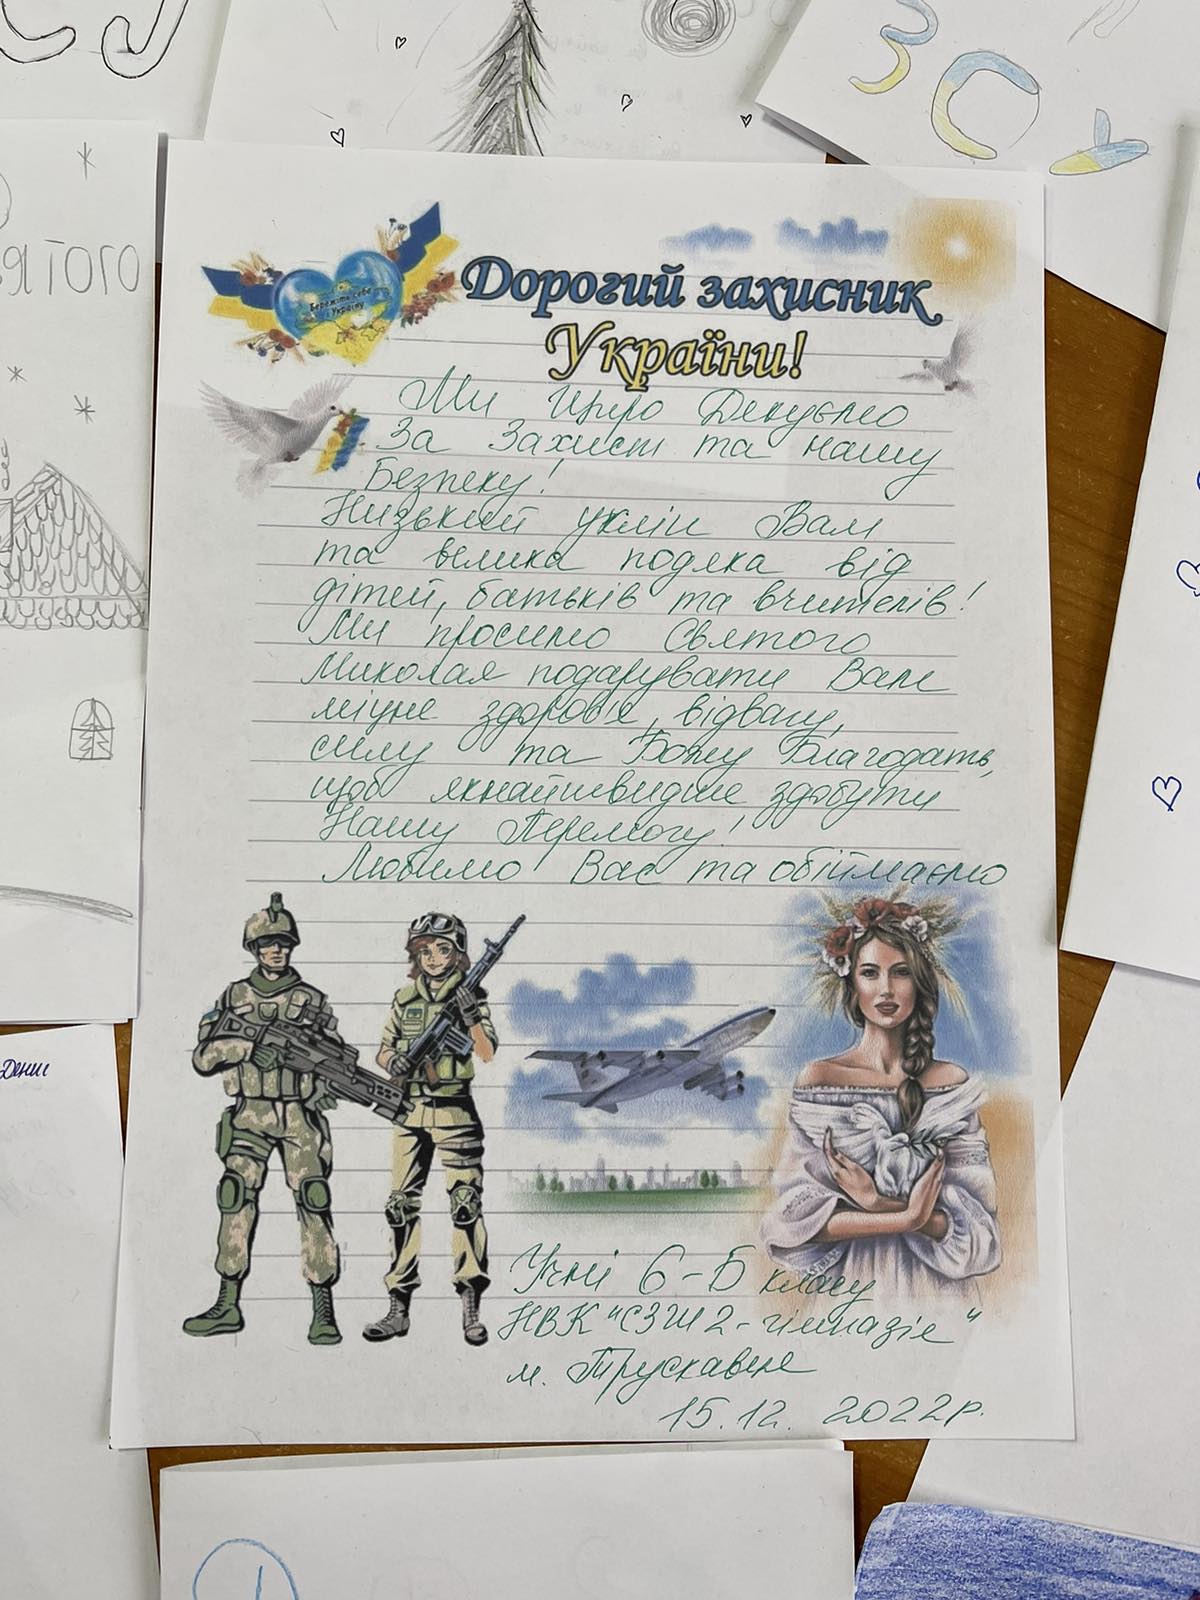 ЯТОГО
Бережіть себе
і Україну
Дорогий захисник
України!
Ми щиро Дякуємо
За Захист та нашу
Безпеку!
Низький уклін Вам
та велика подяка від
дітей, батьків та вчителів!
Ми просимо Святого
Миколая подарувати Вам
міцне здоров'я, відвагу,
силу та Божу Благодать,
щоб якнайшвидше здобути
Нашу Перемогу!
Любимо Вас та обіймаємо
Учні 6-Б класу
НВК "СЗШ 2-гімназія"
м. Трускавець
15.12. 2022р.